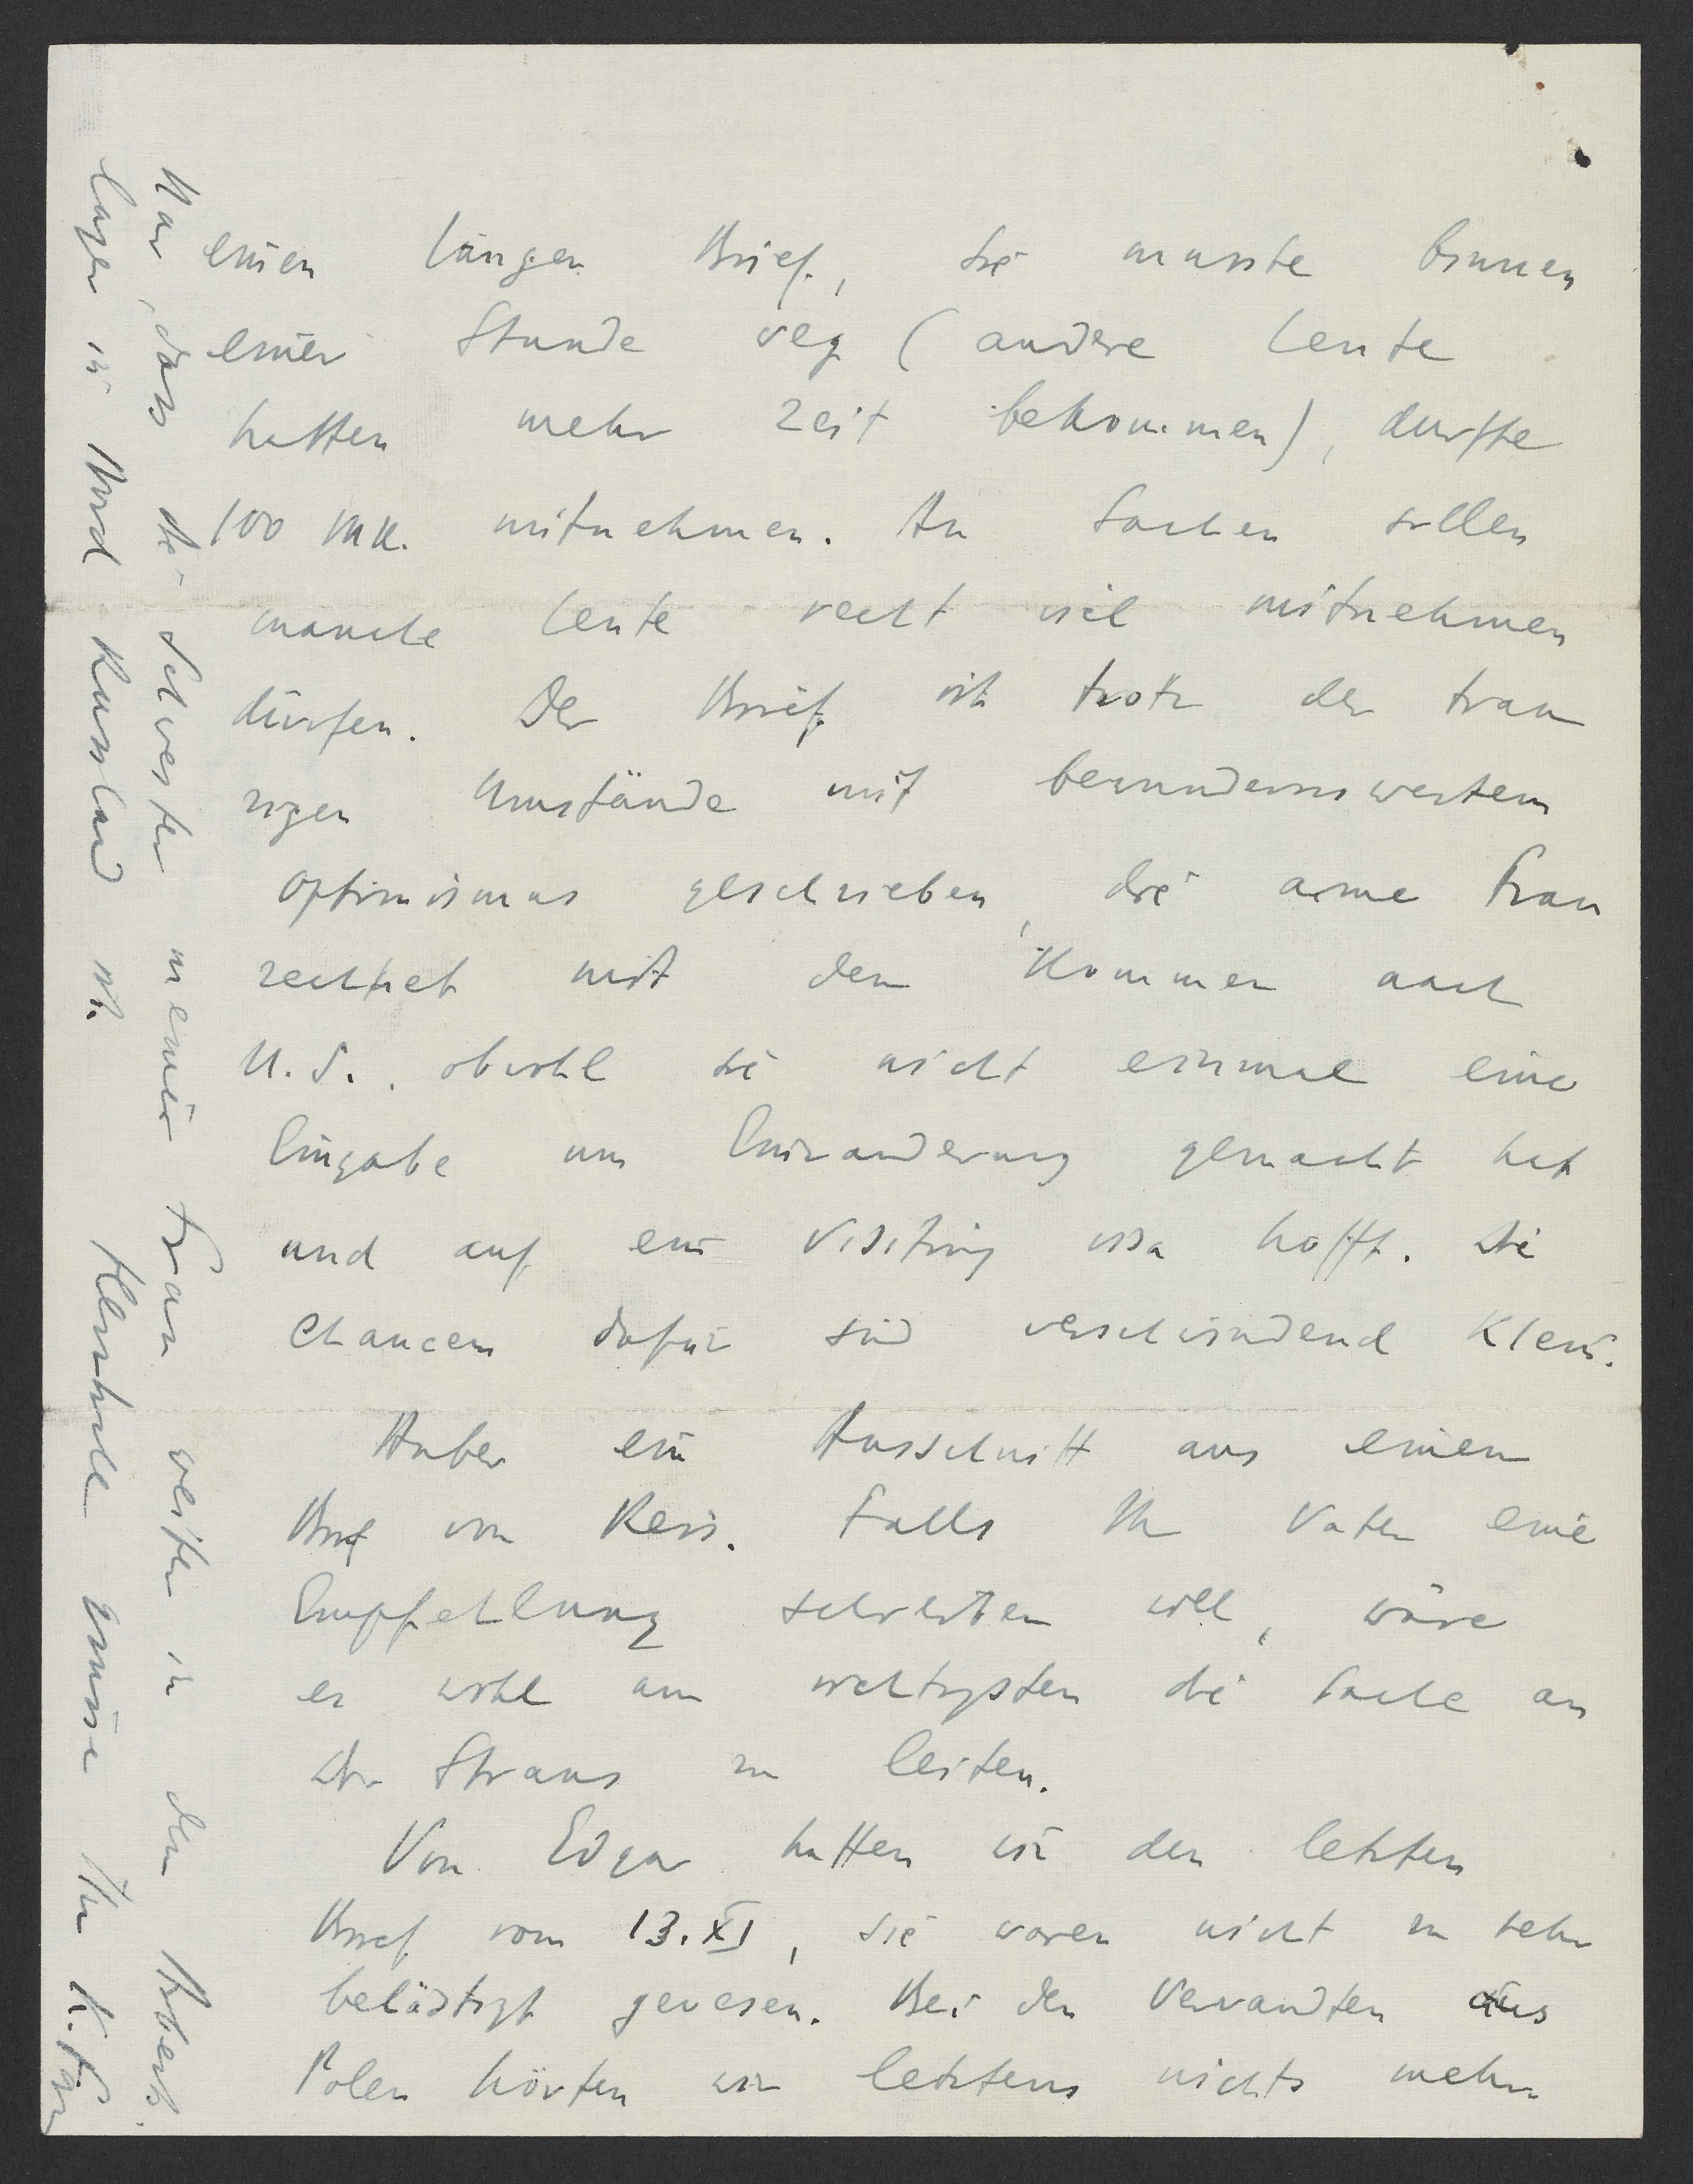 einen längen Brief, sie musste binnen
einer Stunde weg (andere Leute
hatten mehr Zeit bekommen), durfte
100 MK. mitnehmen. An Sachen sollen
manche Leute recht viel mitnehmen
dürfen. Der Brief ist trotz der trau
rigen Umstände mit bewundernswertem
Optimismus geschrieben, die arme Frau
rechnet mit dem Kommen nach
U.S., obwohl sie nicht einmal eine
Eingabe um Einwanderung gemacht hat
und auf ein visiting visa hofft. Die
Chancen dafür sind verschwindend klein.
Anbei ein Ausschnitt aus einem
Brief von Reis. Falls Ihr Vater eine
Empfehlung schreiben will, wäre
es wohl am richtigsten die Sache an
Dr Straus zu leiten.
Von Edgar hatten wir den letzten
Brief vom 13.XI, sie waren nicht zu sehr
belästigt gewesen. Bei den Verwandten aus
Polen hörten wir letztens nichts mehr
nur, dass die Schwester meiner Frau weiter in den Arbeits.
lager in Nord Russland ist. Herzliche Grüsse Ihr K.